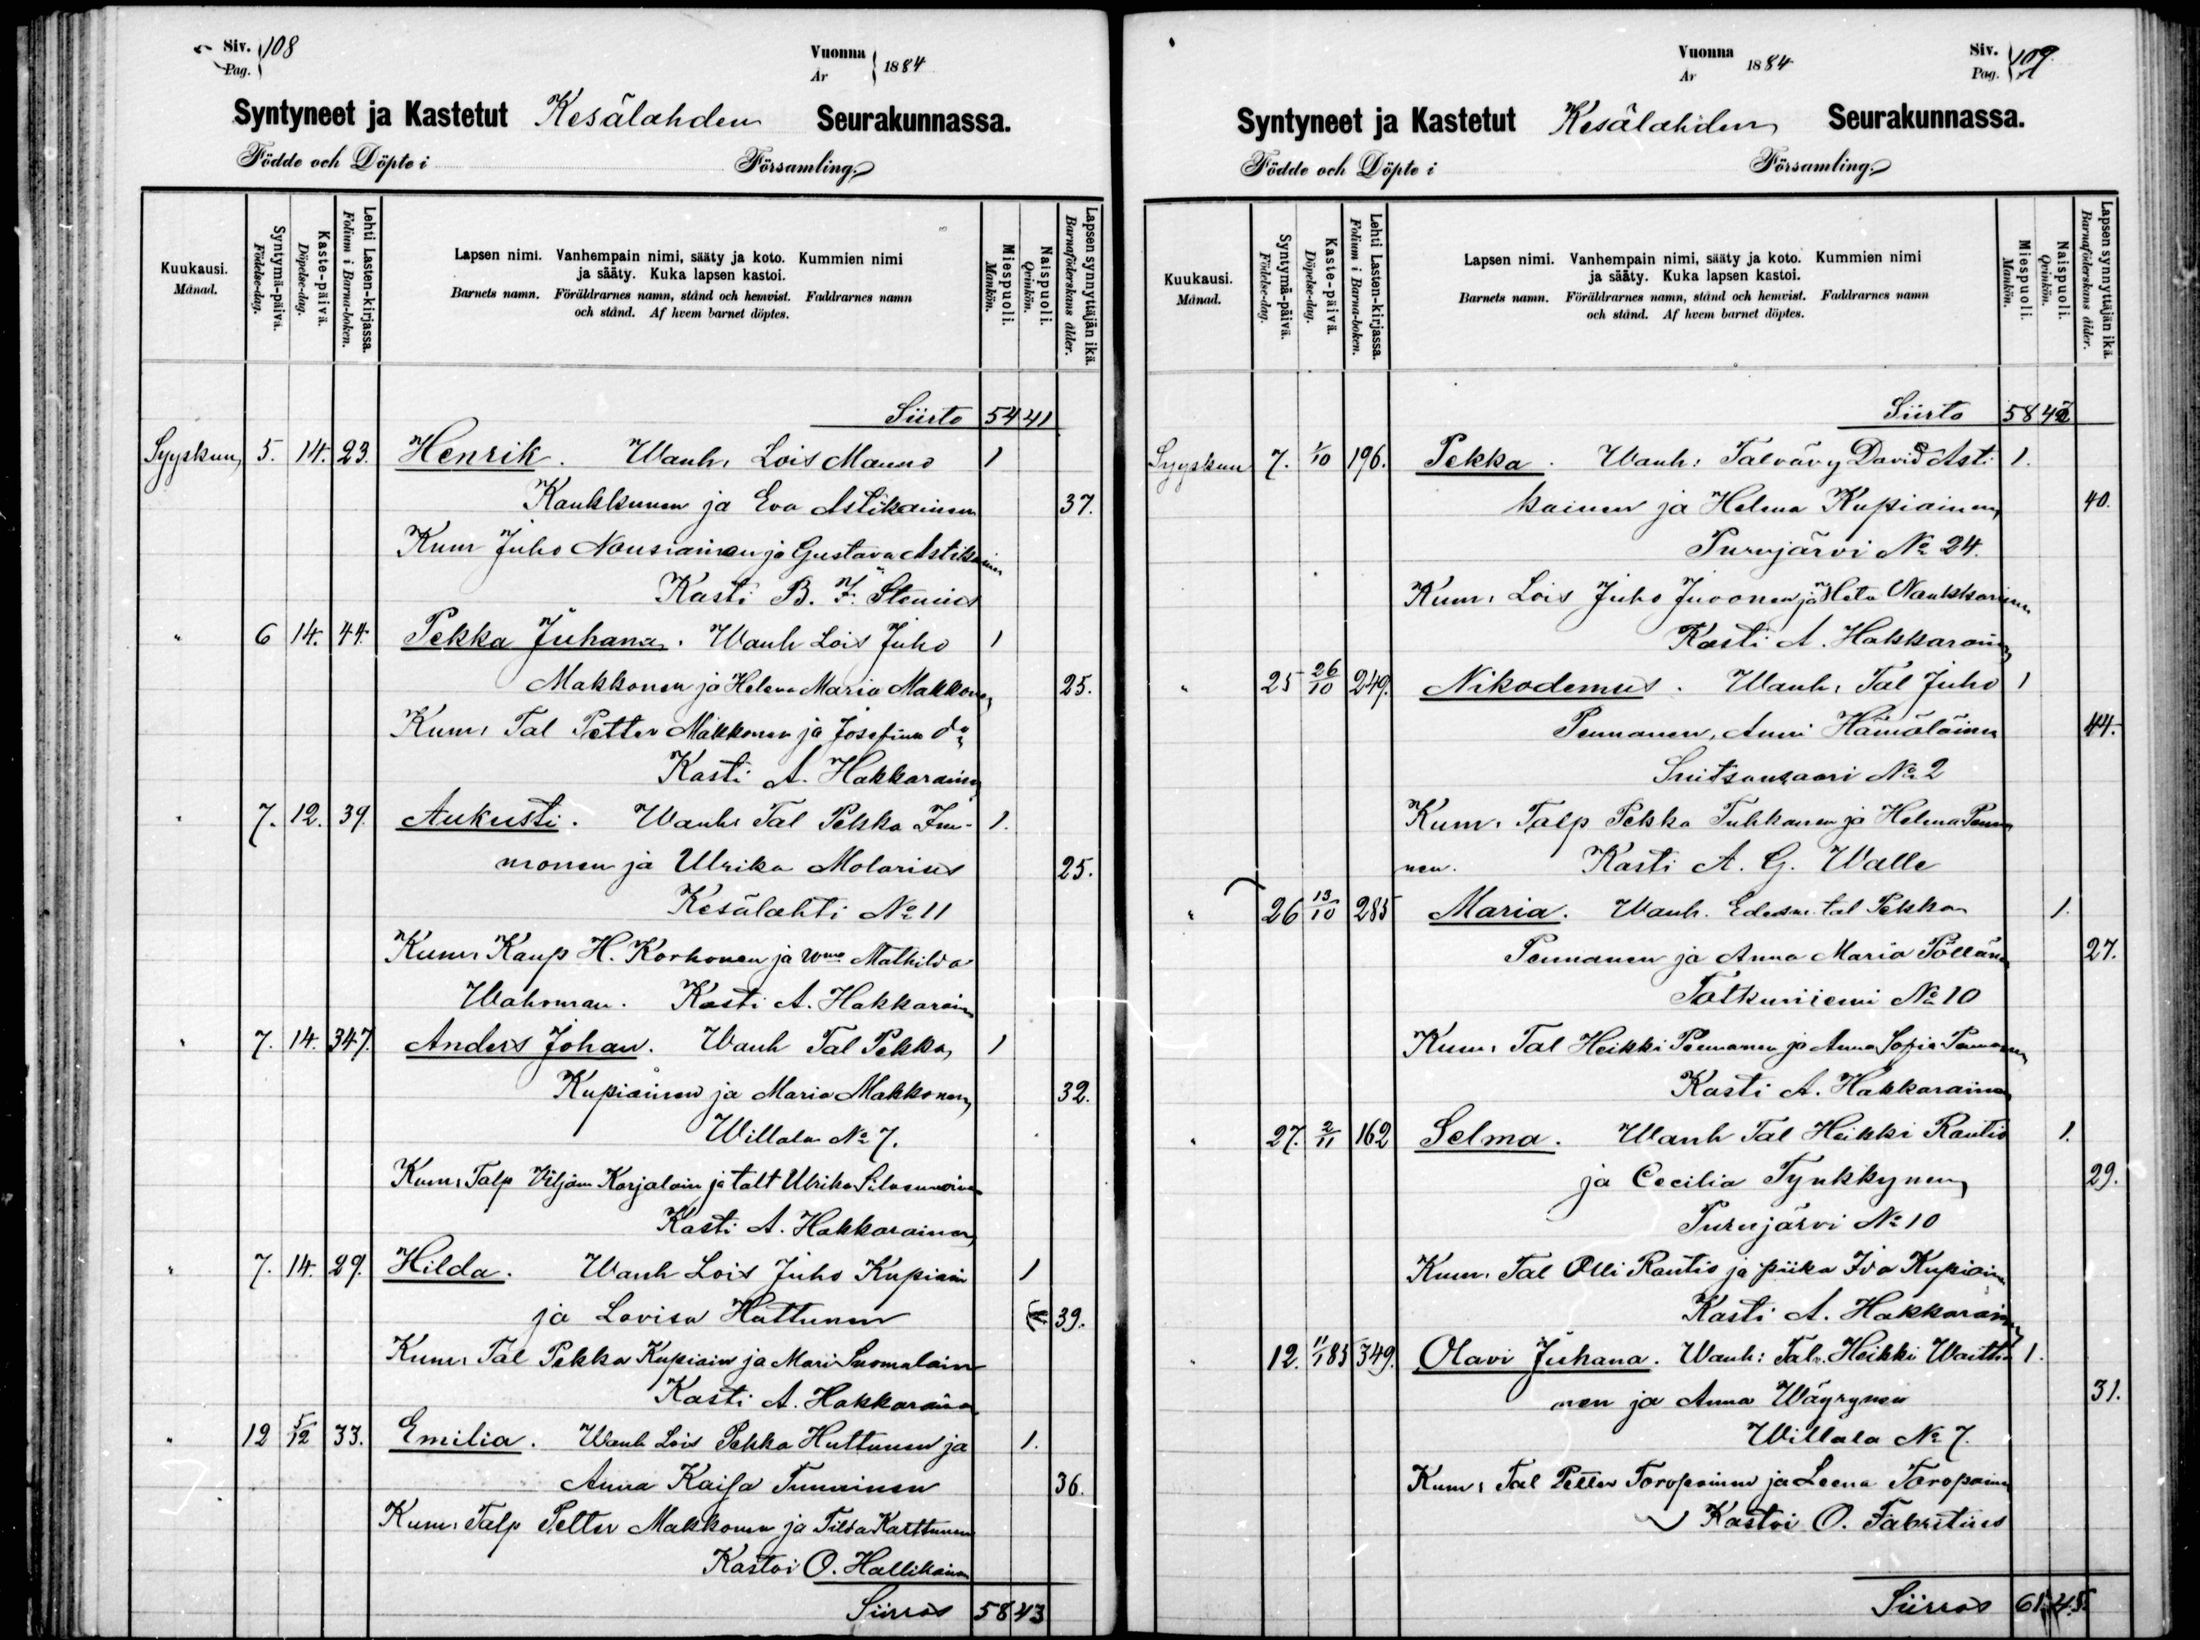 Siv. 108
Pag.
Vuonna 1884
År
Syntyneet ja Kastetut Kesälahden Seurakunnassa.
Födde och Döpte i Församling.
Kuukausi.
Månad.
Syntymä-päivä.
Födelse-dag.
Kaste-päivä.
Döpelse-dag.
Lehti Lasten-kirjassa.
Folium i Barna-boken.
Lapsen nimi. Vanhempain nimi, sääty ja koto. Kummien nimi
ja sääty. Kuka lapsen kastoi.
Barnets namn. Föräldrarnes namn, stånd och hemvist. Faddrarnes namn
och stånd. Af hvem barnet döptes.
Miespuoli.
Mankön.
Naispuoli.
Qvinkön.
Lapsen synnyttäjän ikä.
Barnaföderskans ålder.
Siirto 54 41
Syyskuu 5. 14. 23. Henrik. Wanh: Lois Mauno 1
Kaukkunen ja Eva Astikainen 37.
Kum Juho Nousiainen ja Gustava Astikainen
Kasti B. F. Stenius
" 6 14. 44. Pekka Juhana. Wanh Lois Juho 1
Makkonen ja Helena Maria Makkonen 25.
Kum: Tal Petter Makkonen ja Josefina do
Kasti A. Hakkarainen
" 7. 12. 39. Aukusti. Wanh: Tal Pekka Im- 1.
monen ja Ulrika Molarius 25.
Kesälahti No 11
Kum: Kaup H. Korhonen ja wmo Mathilda
Kasti A. Hakkarain
" 7. 14. 347. Anders Johan. Wanh Tal Pekka 1
Kupiainen ja Maria Makkonen 32.
Willala No 7.
Kum: Talp Viljam Karjalain ja talt Ulrika
Kasti A. Hakkarainen
" 7. 14. 29. Hilda. Wanh Lois Juho Kupiain 1
ja Lovisa Hattunen 39.
Kum: Tal Pekka Kupiain ja Mari Suomalain
Kasti A. Hakkarainen
" 12 5/12 33. Emilia. Wanh Lois Pekka Huttunen ja 1.
Anna Kaisa Tuuninen 36.
Kum: Talp Petter Makkonen ja Tilda Karttunen
Kastoi O. Hallikainen
Siirros 58 43
Vuonna 1884
År
Siv. 109
Pag.
Syntyneet ja Kastetut Kesälahden Seurakunnassa.
Födde och Döpte i Församling.
Kuukausi.
Månad.
Syntymä-päivä.
Födelse-dag.
Kaste-päivä.
Döpelse-dag.
Lehti Lasten-kirjassa.
Folium i Barna-boken.
Lapsen nimi. Vanhempain nimi, sääty ja koto. Kummien nimi
ja sääty. Kuka lapsen kastoi.
Barnets namn. Föräldrarnes namn, stånd och hemvist. Faddrarnes namn
och stånd. Af hvem barnet döptes.
Miespuoli.
Mankön.
Naispuoli.
Qvinkön.
Lapsen synnyttäjän ikä.
Barnaföderskans ålder.
Siirto 58
Syyskuu 7. 1/10 196. Pekka. Wanh: Talvävy David Asti 1.
kainen ja Helena Kupiainen 40.
Purujärvi No 24.
Kum: Lois Juho Juvonen ja Heta Naukkarinen
Kasti A. Hakkarainen
" 25 26/10 249. Nikodemus. Wanh: Tal Juho 1
Pennanen, Anni Hämäläinen 44.
No 2
Kum: Talp Pekka Tuhkanen ja Helena Penna
nen. Kasti A. G. Walle
" 26 13/10 285 Maria. Wanh. tal Pekka 1.
Pennanen ja Anna Maria Pöllänen 27.
Totkuniemi No 10
Kum: Tal Heikki Pennanen ja Anna Sofia Pennanen
Kasti A. Hakkarainen
" 27. 2/11 162 Selma. Wanh Tal Heikki Rautio 1.
ja Cecilia Tynkkynen 29.
Purujärvi No 10
Kum: Tal Olli Rautio ja piika Ida Kupiain
Kasti A. Hakkarainen
" 12. 11/1 85 349. Olavi Juhana. Wanh: Tal: Heikki Waitti 1.
nen ja Anna Wäyrynen 31.
Willala No 7.
Kum: Tal Petter Toropainen ja Leena Toropainen
Kastoi O. Fabritius
Siirros 61 45